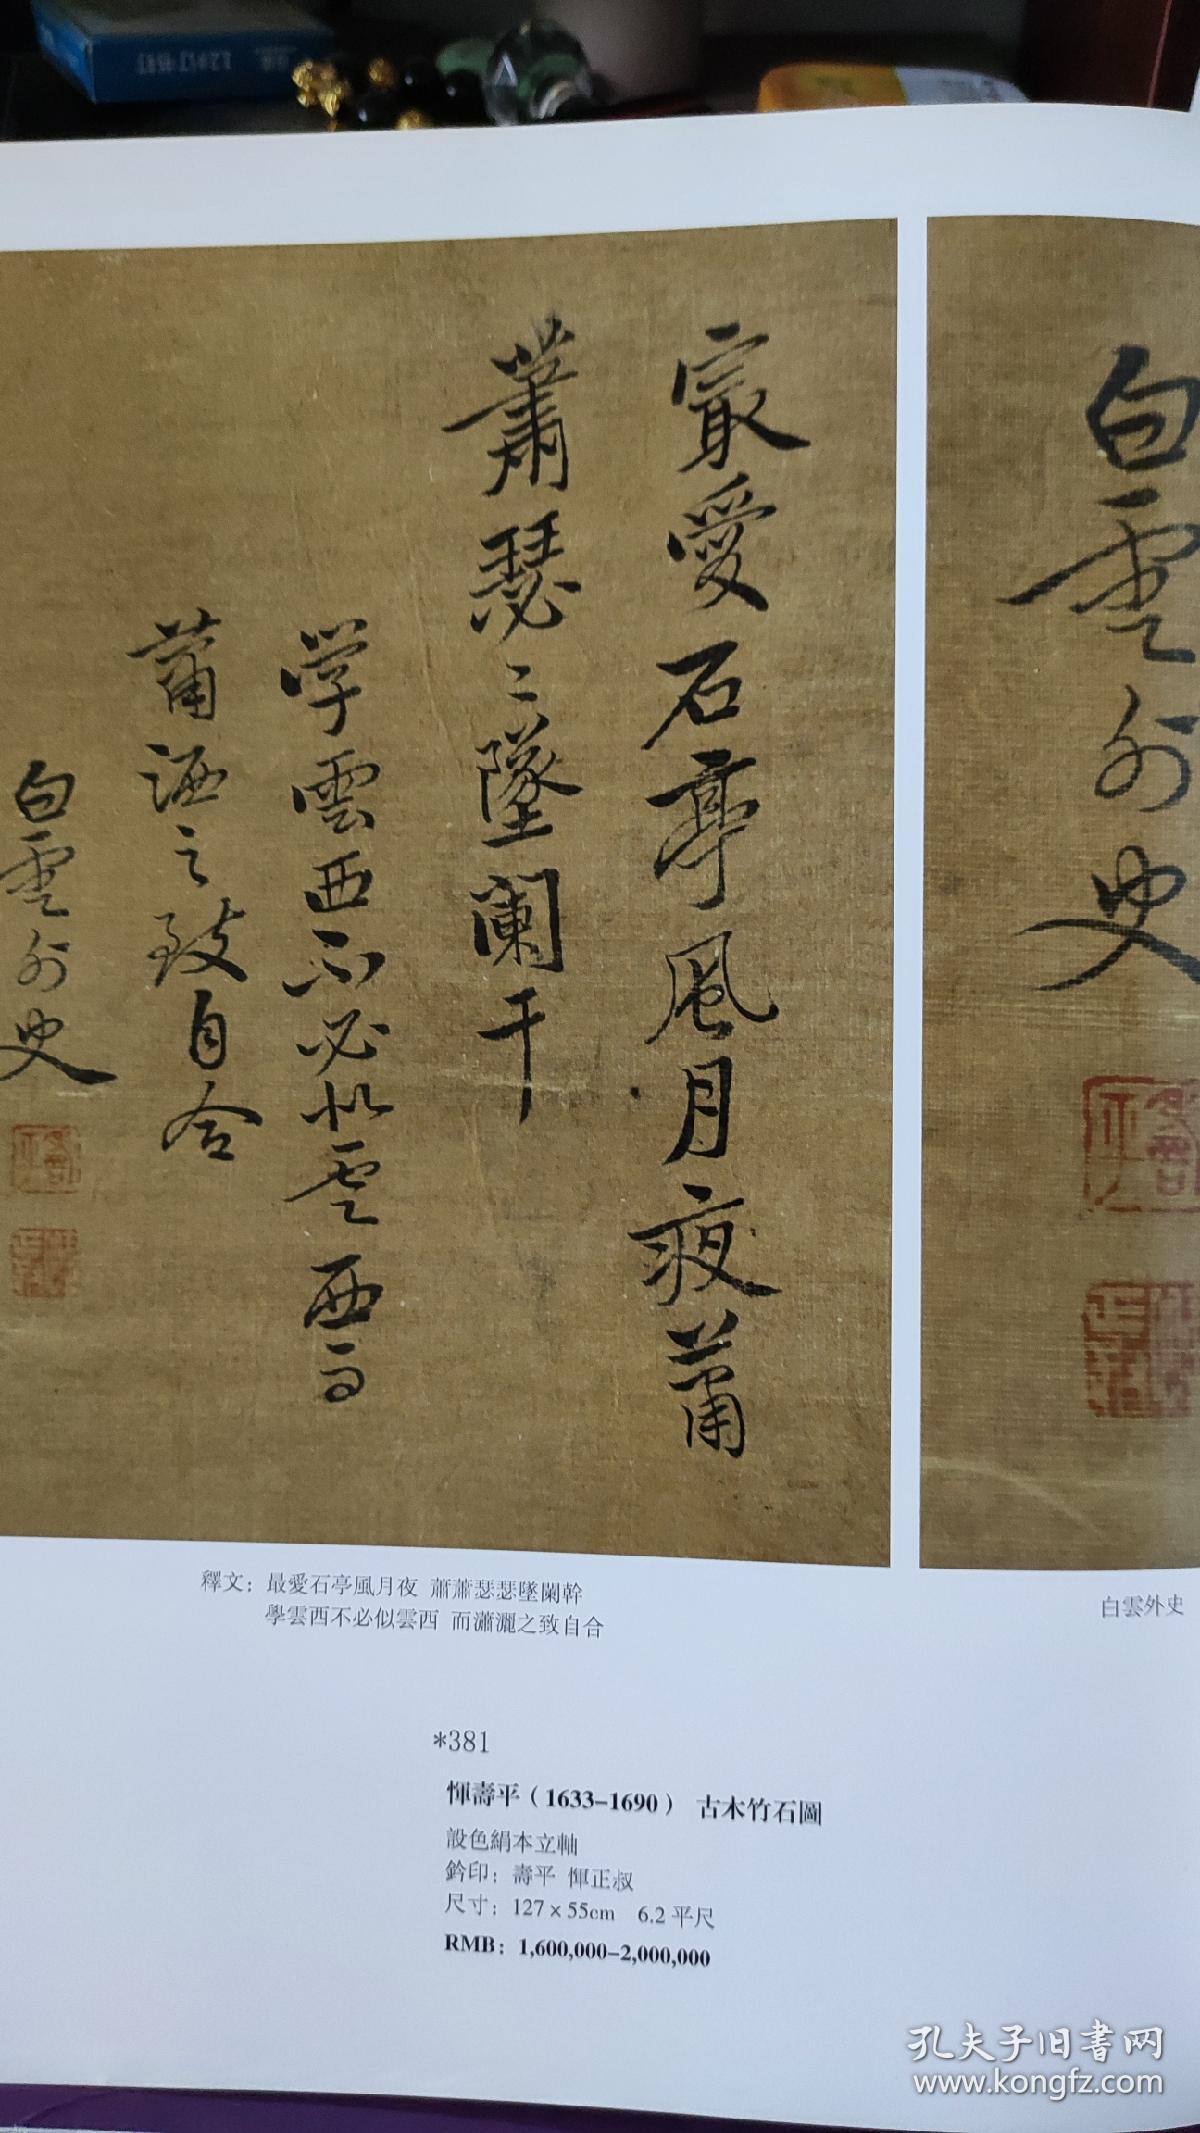 最愛石亭風月夜蕭
蕭瑟〻墜闌干
学雲西不必似雲西而
蕭洒之致自合
白雲外史
壽平
白雲外史
壽平
釋文：最愛石亭風月夜 蕭蕭瑟瑟墜闌幹
學雲西不必似雲西 而瀟灑之致自合
白雲外史
*381
惲壽平（1633-1690） 古木竹石圖
設色絹本立軸
鈐印：壽平 惲正叔
尺寸：127×55cm 6.2平尺
RMB：1,600,000-2,000,000
孔夫子旧书网
www.kongfz.com